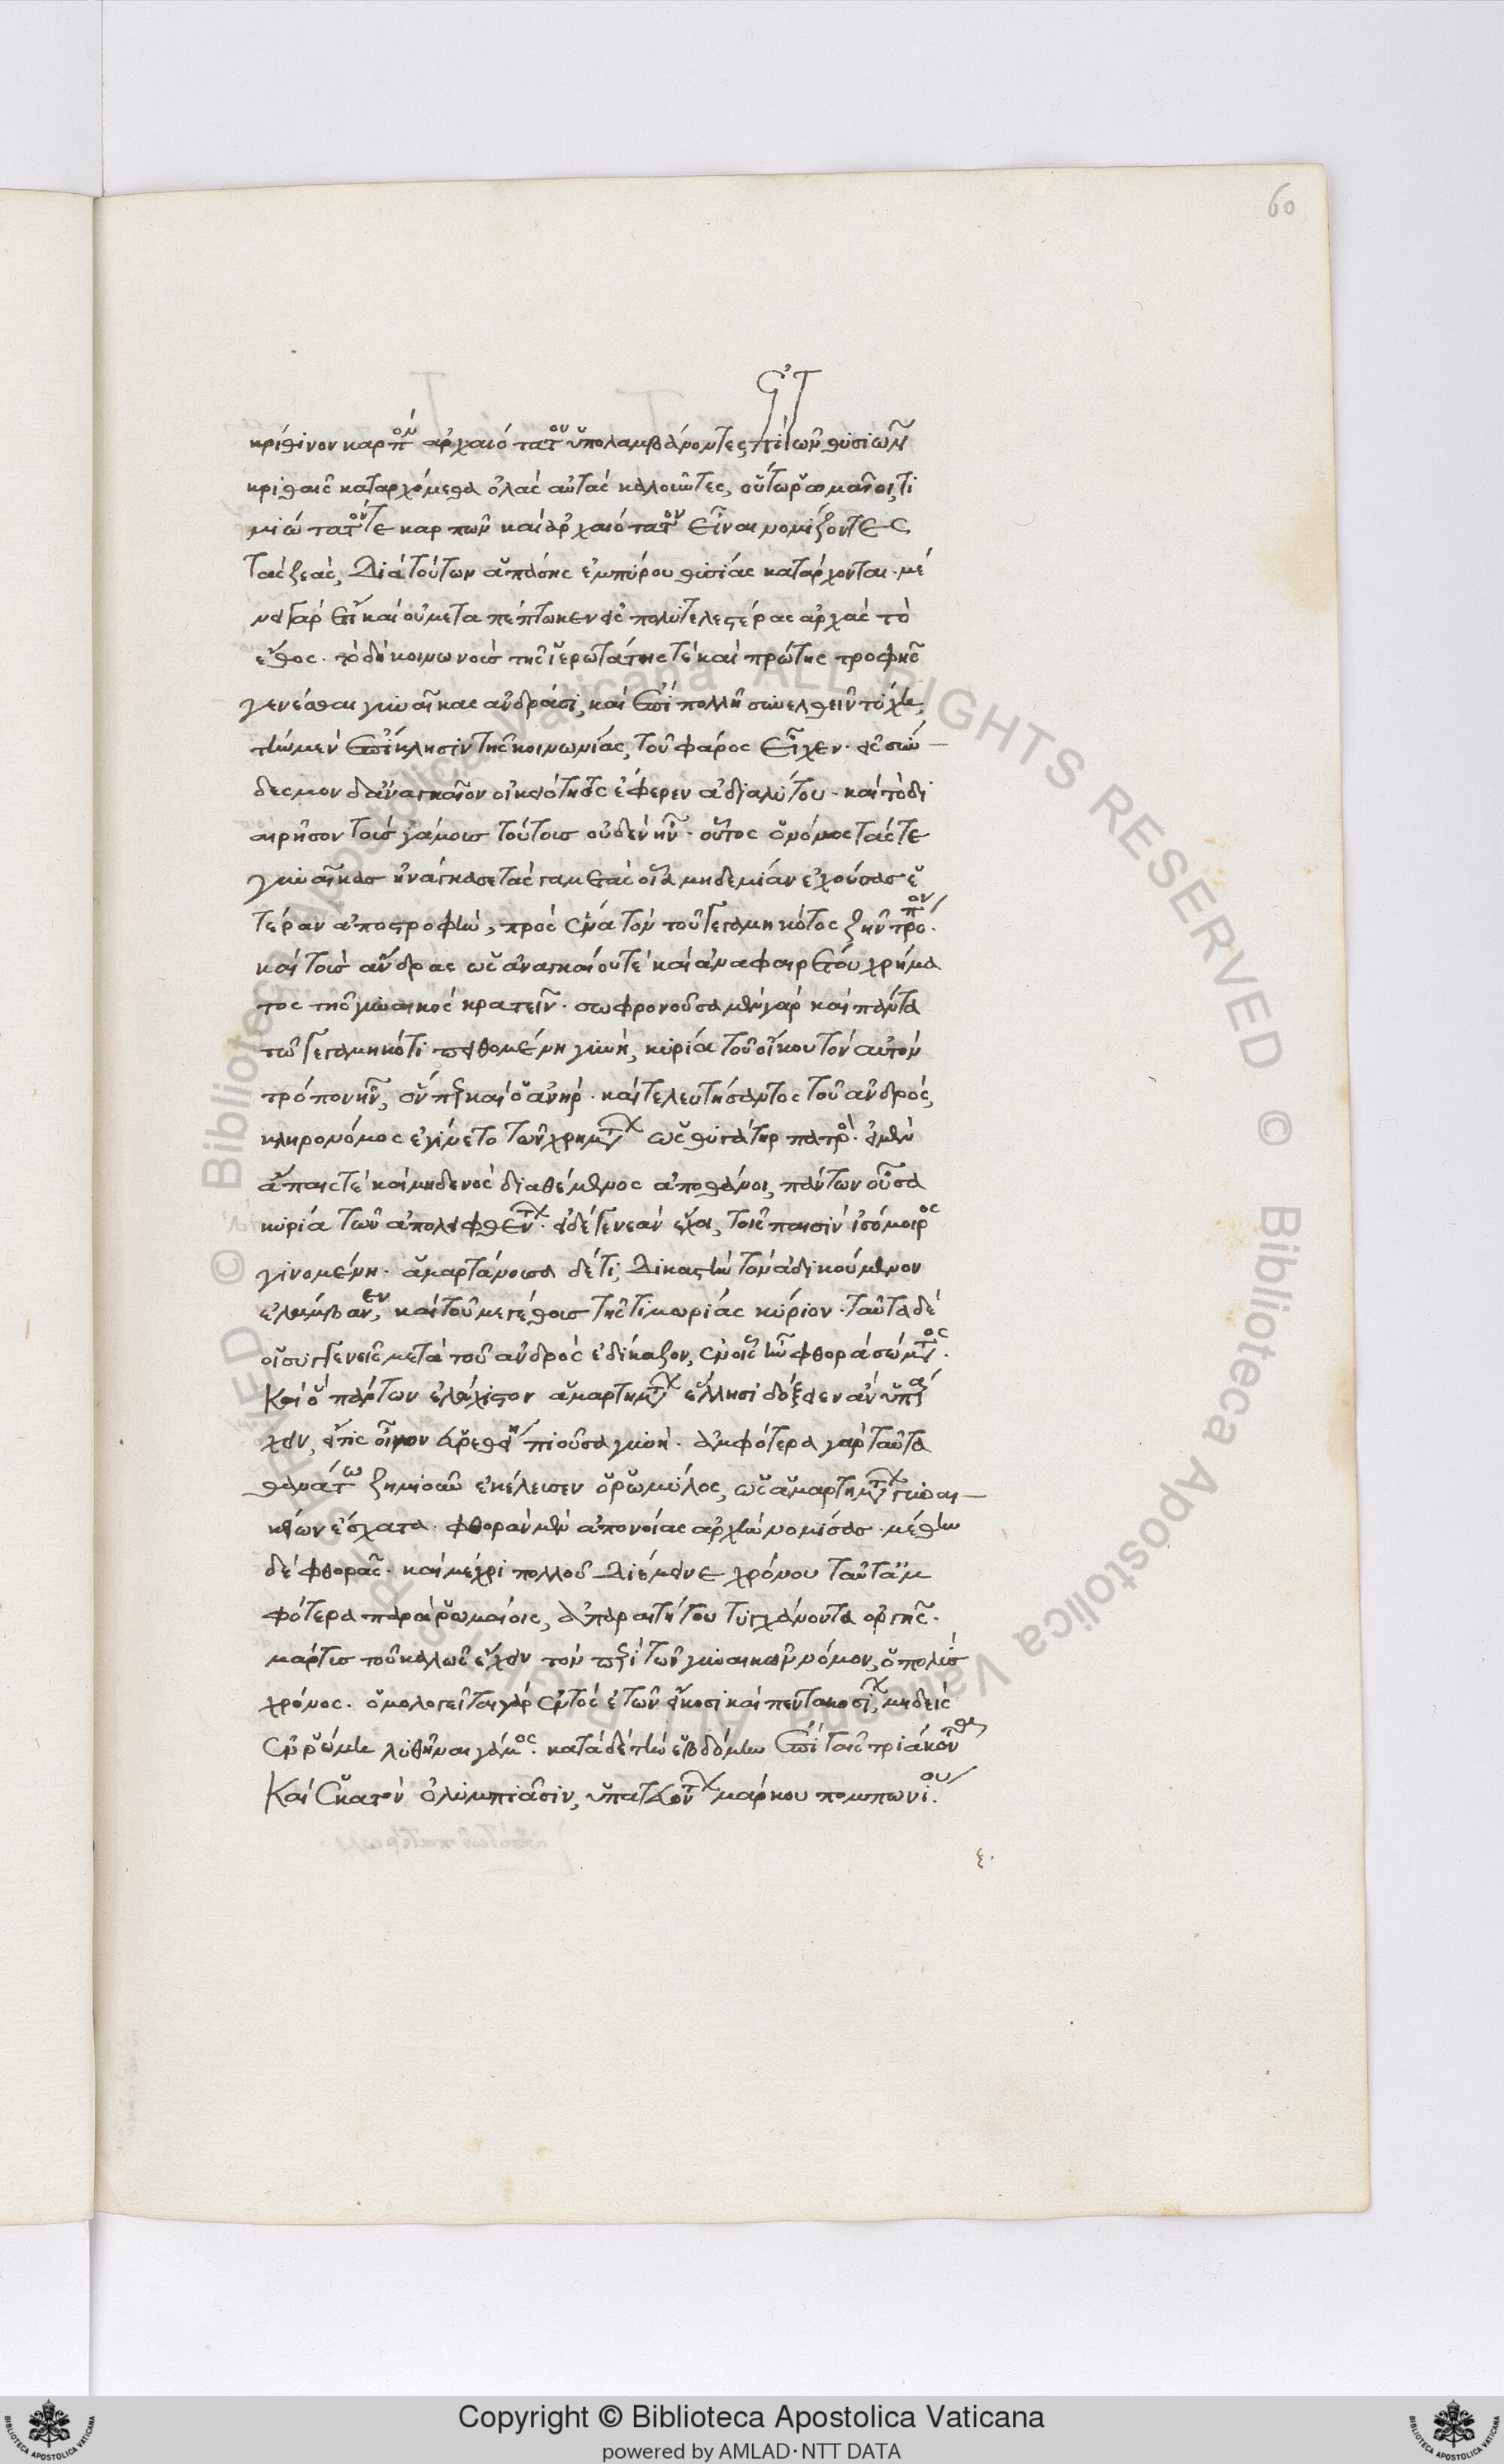 60
κρίθινον καρπὸν ἀρχαιότατον ὑπολαμβάνοντες ἐπὶ τῶν θυσιῶν
κριθαῖς καταρχόμεθα ὀλὰς αὐτὰς καλοῦντες, οὕτω ῥωμαῖοι τι
μιώτατόν τε καρπὸν καὶ ἀρχαιότατον εἶναι νομίζοντες
τὰς ζεὰς, διὰ τούτων ἁπάσης ἐμπύρου θυσίας κατάρχονται. μέ
νει γὰρ ἔτι καὶ οὐ μεταπέπτωκεν εἰς πολυτελεστέρας ἀρχὰς τὸ
ἔθος. τὸ δὴ κοινωνοὺς τῆς ἱερωτάτης τὲ καὶ πρώτης τροφῆς
γενέσθαι γυναῖκας ἀνδράσι, καὶ ἐπὶ πολλῇ συνελθεῖν τύχῃ,
τὴν μὲν ἐπίκλησιν τῆς κοινωνίας τοῦ φαρὸς εἶχεν. εἰς σύν
δεσμον δ' ἀναγκαῖον οἰκειότητος ἔφερεν ἀδιαλύτου. καὶ τὸ δι
αιρῆσον τοὺς γάμους τούτους οὐδὲν ἦν. οὗτος ὁ νόμος τάς τε
γυναῖκας ἠνάγκασε τὰς γαμετὰς οἷα μηδεμίαν ἐχούσας ἑ
τέραν ἀποστροφὴν, πρὸς ἕνα τὸν τοῦ γεγαμηκότος ζῆν τρόπον.
καὶ τοὺς ἄνδρας ὡς ἀναγκαίου τὲ καὶ ἀναφαιρέτου χρήμα
τος τῆς γυναικὸς κρατεῖν. σωφρονοῦσα μὲν γὰρ καὶ πάντα
τῷ γεγαμηκότι πειθομένη γυνὴ, κυρία τοῦ οἴκου τὸν αὐτὸν
τρόπον ἦν, ὅνπερ καὶ ὁ ἀνήρ. καὶ τελευτήσαντος τοῦ ἀνδρὸς,
κληρονόμος ἐγίνετο τῶν χρημάτων ὡς θυγάτηρ πατρός. εἰ μὲν
ἄπαις τὲ καὶ μηδενὸς διαθέμενος ἀποθάνοι, πάντων οὖσα
κυρία τῶν ἀπολειφθέντων. εἰ δὲ γενεὰν ἔχοι, τοῖς παισὶν ἰσόμοιρος
γινομένη. ἁμαρτάνουσα δέ τι, δικαστὴν τὸν ἀδικούμενον
ἐλάμβανεν, καὶ τοῦ μεγέθους τῆς τιμωρίας κύριον. ταῦτα δὲ
οἱ συγγενεῖς μετὰ τοῦ ἀνδρὸς ἐδίκαζον, ἐν οἷς ἦν φθορὰ σώματος.
Καὶ ὃ πάντων ἐλάχιστον ἁμαρτημάτων ἕλλησι δόξειεν ἂν ὑπάρ
χειν, εἴ τις οἶνον εὑρεθείη πιοῦσα γυνή. ἀμφότερα γὰρ ταῦτα
θανάτῳ ζημιοῦν ἐκέλευσεν ὁ ῥωμύλος, ὡς ἁμαρτημάτων γυναι
κείων ἔσχατα. φθορὰν μὲν ἀπονοίας ἀρχὴν νομίσας. μέθην
δὲ φθορᾶς. καὶ μέχρι πολλοῦ διέμεινε χρόνου ταῦτ' ἀμ
φότερα παρὰ ῥωμαίοις, ἀπαραιτήτου τυγχάνοντα ὀργῆς.
μάρτυς τοῦ καλῶς ἔχειν τὸν περὶ τῶν γυναικῶν νόμον, ὁ πολὺς
χρόνος. ὁμολογεῖται γὰρ ἐντὸς ἐτῶν εἴκοσι καὶ πεντακοσίων, μηδεὶς
ἐν ῥώμῃ λυθῆναι γάμος. κατὰ δὲ τὴν ἑβδόμην ἐπὶ ταῖς τριάκοντα
Καὶ ἑκατὸν ὀλυμπιάσιν, ὑπατευόντων μάρκου πομπωνίου
Copyright © Biblioteca Apostolica Vaticana
powered by AMLAD·NTT DATA